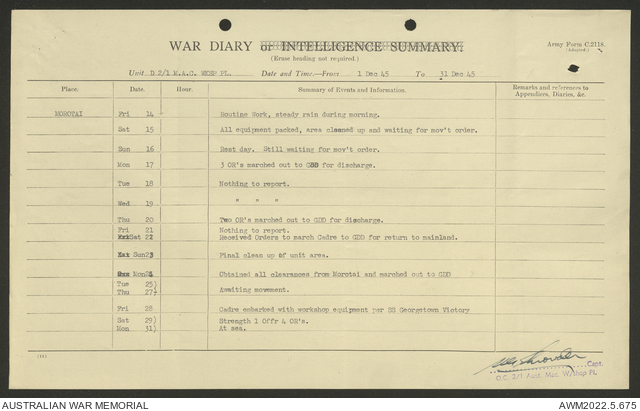 WAR DIARY or INTELLIGENCE SUMMARY.
Army Form C.2118.
(Adapted.)
(Erase heading not required.)
Unit D 2/1 M.A.C. WKSP PL. Date and Time.—From 1 Dec 45 To 31 Dec 45
Place. Date. Hour. Summary of Events and Information. Remarks and references to Appendices, Diaries, &c.
MOROTAI Fri 14 Routine Work, steady rain during morning.
Sat 15 All equipment packed, area cleaned up and waiting for mov't order.
Sun 16 Rest day. Still waiting for mov't order.
Mon 17 3 OR's marched out to GDD for discharge.
Tue 18 Nothing to report.
Wed 19 " " "
Thu 20 Two OR's marched out to GDD for discharge.
Fri 21 Nothing to report.
Sat 22 Received Orders to march Cadre to GDD for return to mainland.
Sun 23 Final clean up of unit area.
Mon 24 Obtained all clearances from Morotai and marched out to GDD
Tue 25)
Thu 27) Awaiting movement.
Fri 28 Cadre embarked with workshop equipment per SS Georgetown Victory
Sat 29) Strength 1 Offr 4 OR's.
Mon 31) At sea.
Capt.
O.C. 2/1 Aust. Mac. W/shop Pl.
AUSTRALIAN WAR MEMORIAL
AWM2022.5.675